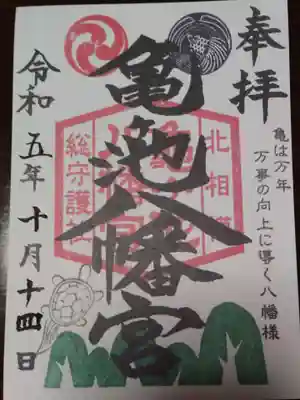 奉拝
亀は万年
万事の向上に導く八幡様
北相模
亀ヶ池
八幡宮
総守護社
亀ヶ池八幡宮
令和五年十月十四日